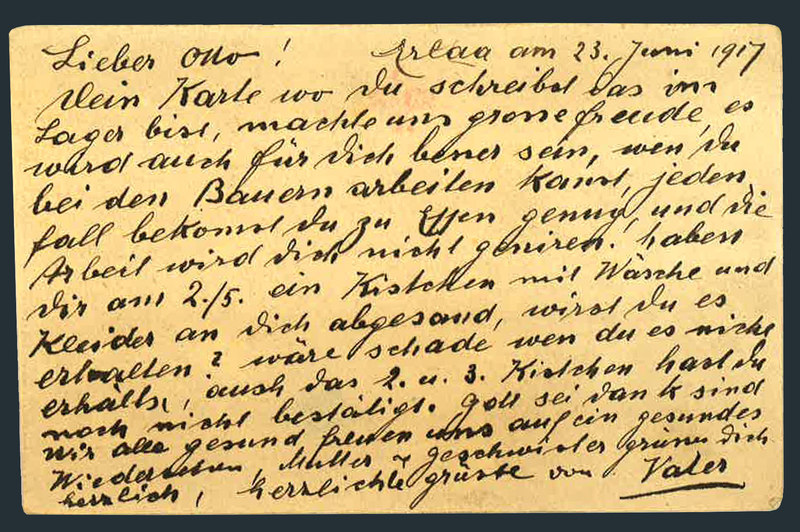 Lieber Otto! Erlaa am 23. Juni 1917
Dein Karte wo du schreibst das im
Lager bist, machte uns grosse freude, es
wird auch für dich besser sein, wen du
bei den Bauern arbeiten kanst, jeden
fall bekomst du zu Essen genug, und die
Arbeit wird dich nicht geniren! haben
dir am 2./5. ein Kistchen mit Wäsche und
Kleider an dich abgesand, wirst du es
erhalten? wäre schade wen du es nicht
erhälst, auch das 2. u. 3. Kistchen hast du
noch nicht bestätigt. Gott sei dank sind
wir alle gesund freuen uns auf ein gesundes
Wiedersehen, Mutter u geschwister grüssen dich
herzlich, herzlichte grüsse von Vater